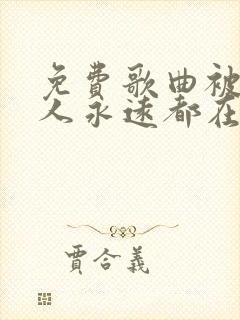 免费歌曲被
人永远都在
贾合义